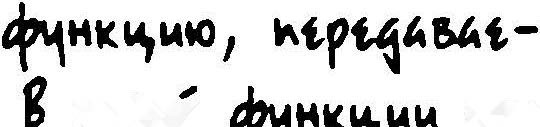 функцию, передавае-
в функции